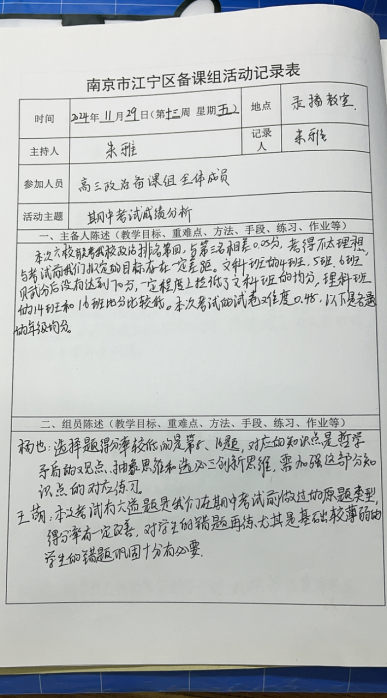 南京市江宁区备课组活动记录表
时间 2024年11月29日(第十三周 星期五) 地点 录播教室
主持人 朱雅 记录人 朱雅
参加人员 高三政治备课组全体成员
活动主题 期中考试成绩分析
一、主备人陈述(教学目标、重难点、方法、手段、练习、作业等)
本次六校联考我校政治排名第四,与第三名相差0.05分,考得不太理想,
与考试前我们拟定的目标存在一定差距。文科班的4班、5班、6班
赋分后没有达到70分,一定程度上拉低了文科班的均分,理科班
的14班和16班均分比较低。本次考试的试卷难度0.48,以下是各题
的年级均分。
二、组员陈述(教学目标、重难点、方法、手段、练习、作业等)
杨也:选择题得分率较低的是第8、 题,对应的知识点是哲学
矛盾的 点、抽象思维和选必三创新思维,需加强这部分知
识点的对应练习。
王萌:本次考试有大题题是我们在期中考试前做过的原题类型,
得分率有一定改善,对学生的错题再练,尤其是基础较薄弱的
学生的错题巩固十分有必要.